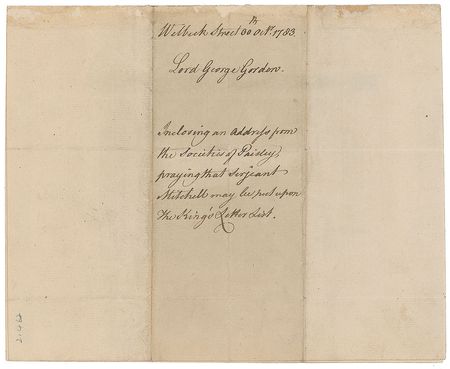 Welbeck Street 30th Octr. 1783.
Lord George Gordon.
Inclosing an Address from
the Societies of Paisley,
praying that Serjeant
Mitchell may be put upon
the King's Letter List.